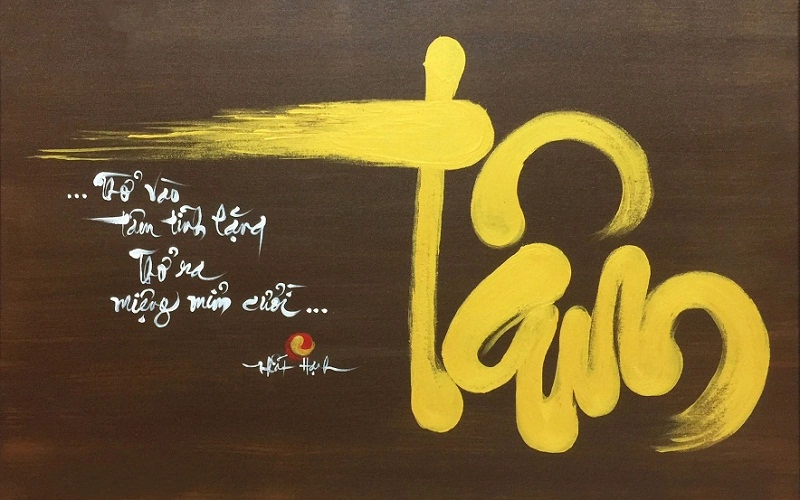 ... Thở vào
tâm tĩnh lặng
Thở ra
miệng mỉm cười ...
Nhất Hạnh
Tâm